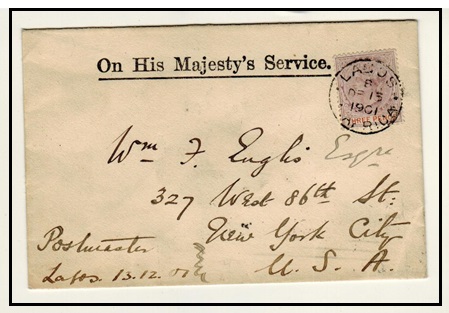 On His Majesty's Service.
LAGOS
DE 13
1901
W. AFRICA
THREE PE
Wm F. Englis Esqre
327 West 86th St:
New York City
U. S. A.
Postmaster
Lagos. 13.12.01